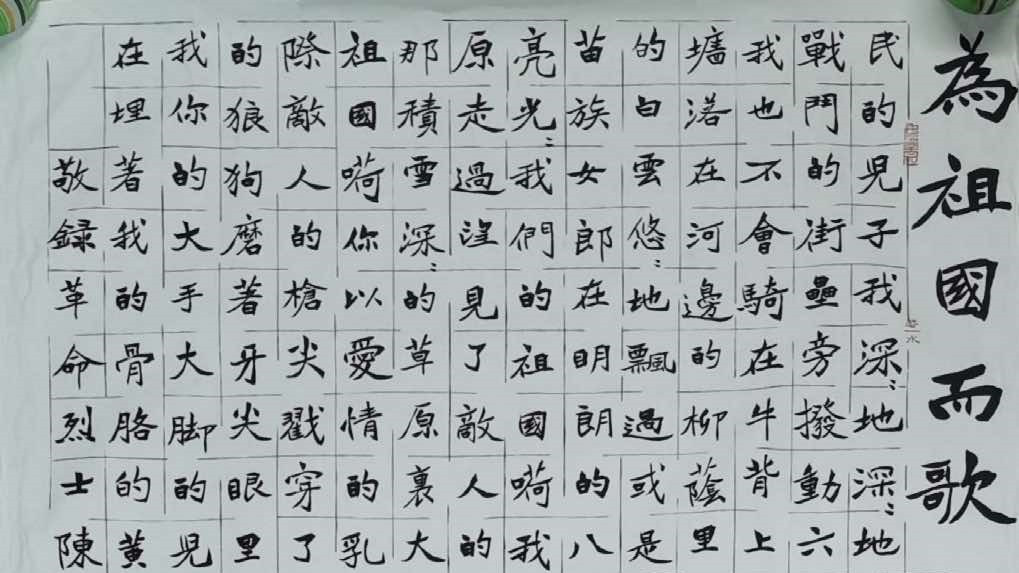 為祖國而歌
民的兒子我深〻地深〻地
戰鬥的街壘旁撥動六
我也不會騎在牛背上
墻落在河邊的柳蔭里
的白雲悠〻地飄過或是
苗族女郎在明朗的八
亮光〻我們的祖國嗬我
原走過望見了敵人的
那積雪深〻的草原裏大
祖國嗬你以愛情的乳
際敵人的槍尖戳穿了
的狼狗磨著牙尖眼里
我你的大手大脚的兒
在埋著我的骨胳的黃
敬録革命烈士陳